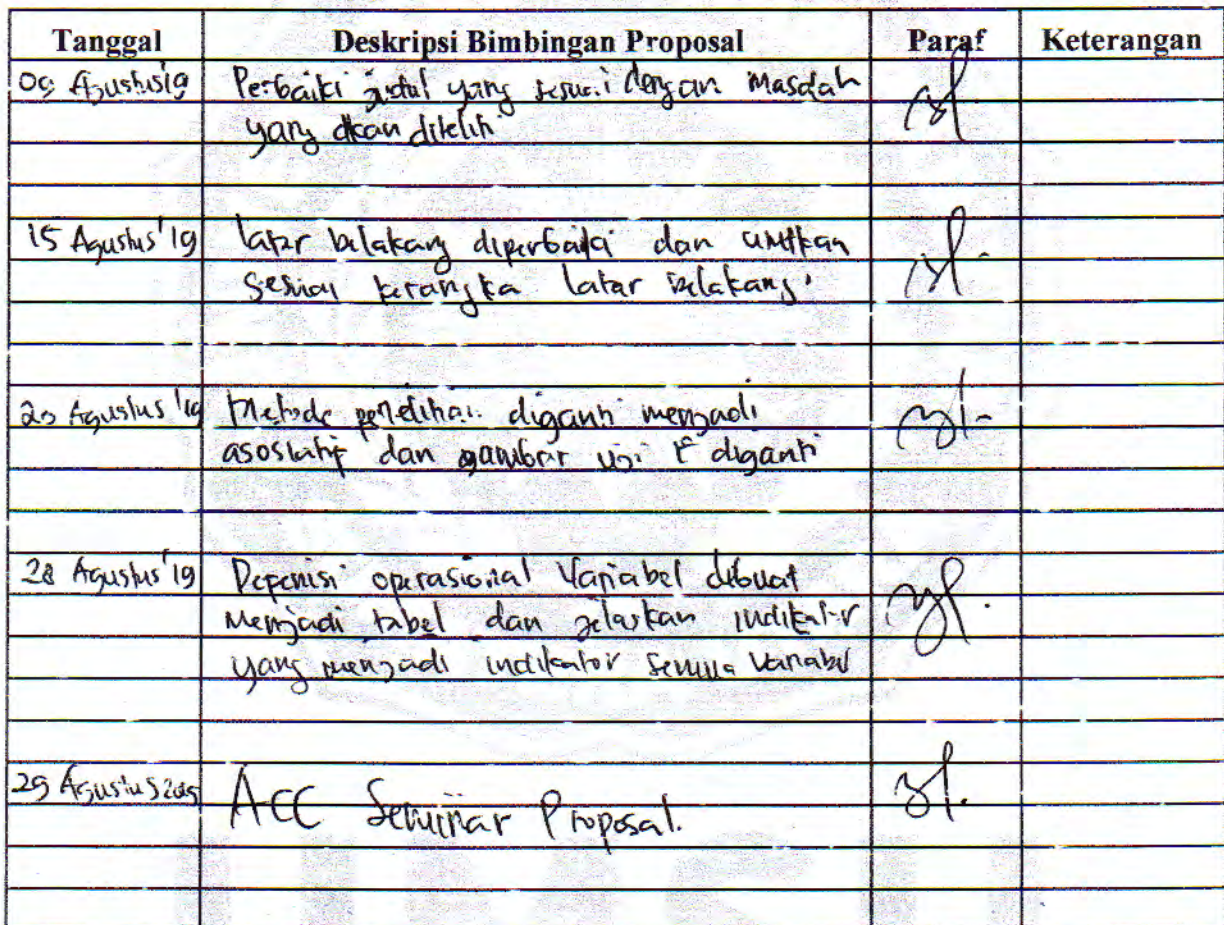 Tanggal Deskripsi Bimbingan Proposal Paraf Keterangan
09 Agustus'19 Perbaiki judul yang sesuai dengan masalah
yang akan diteliti
15 Agustus'19 latar belakang diperbaiki dan urutkan
sesuai kerangka latar belakang.
Agustus'19 Metode penelitian diganti menjadi
asosiatif dan gambar uji F diganti
28 Agustus'19 Depenisi operasional Variabel dibuat
menjadi tabel dan jelaskan indikator
yang menjadi indikator semua variabel
29 Agustus 2019 ACC Seminar Proposal.